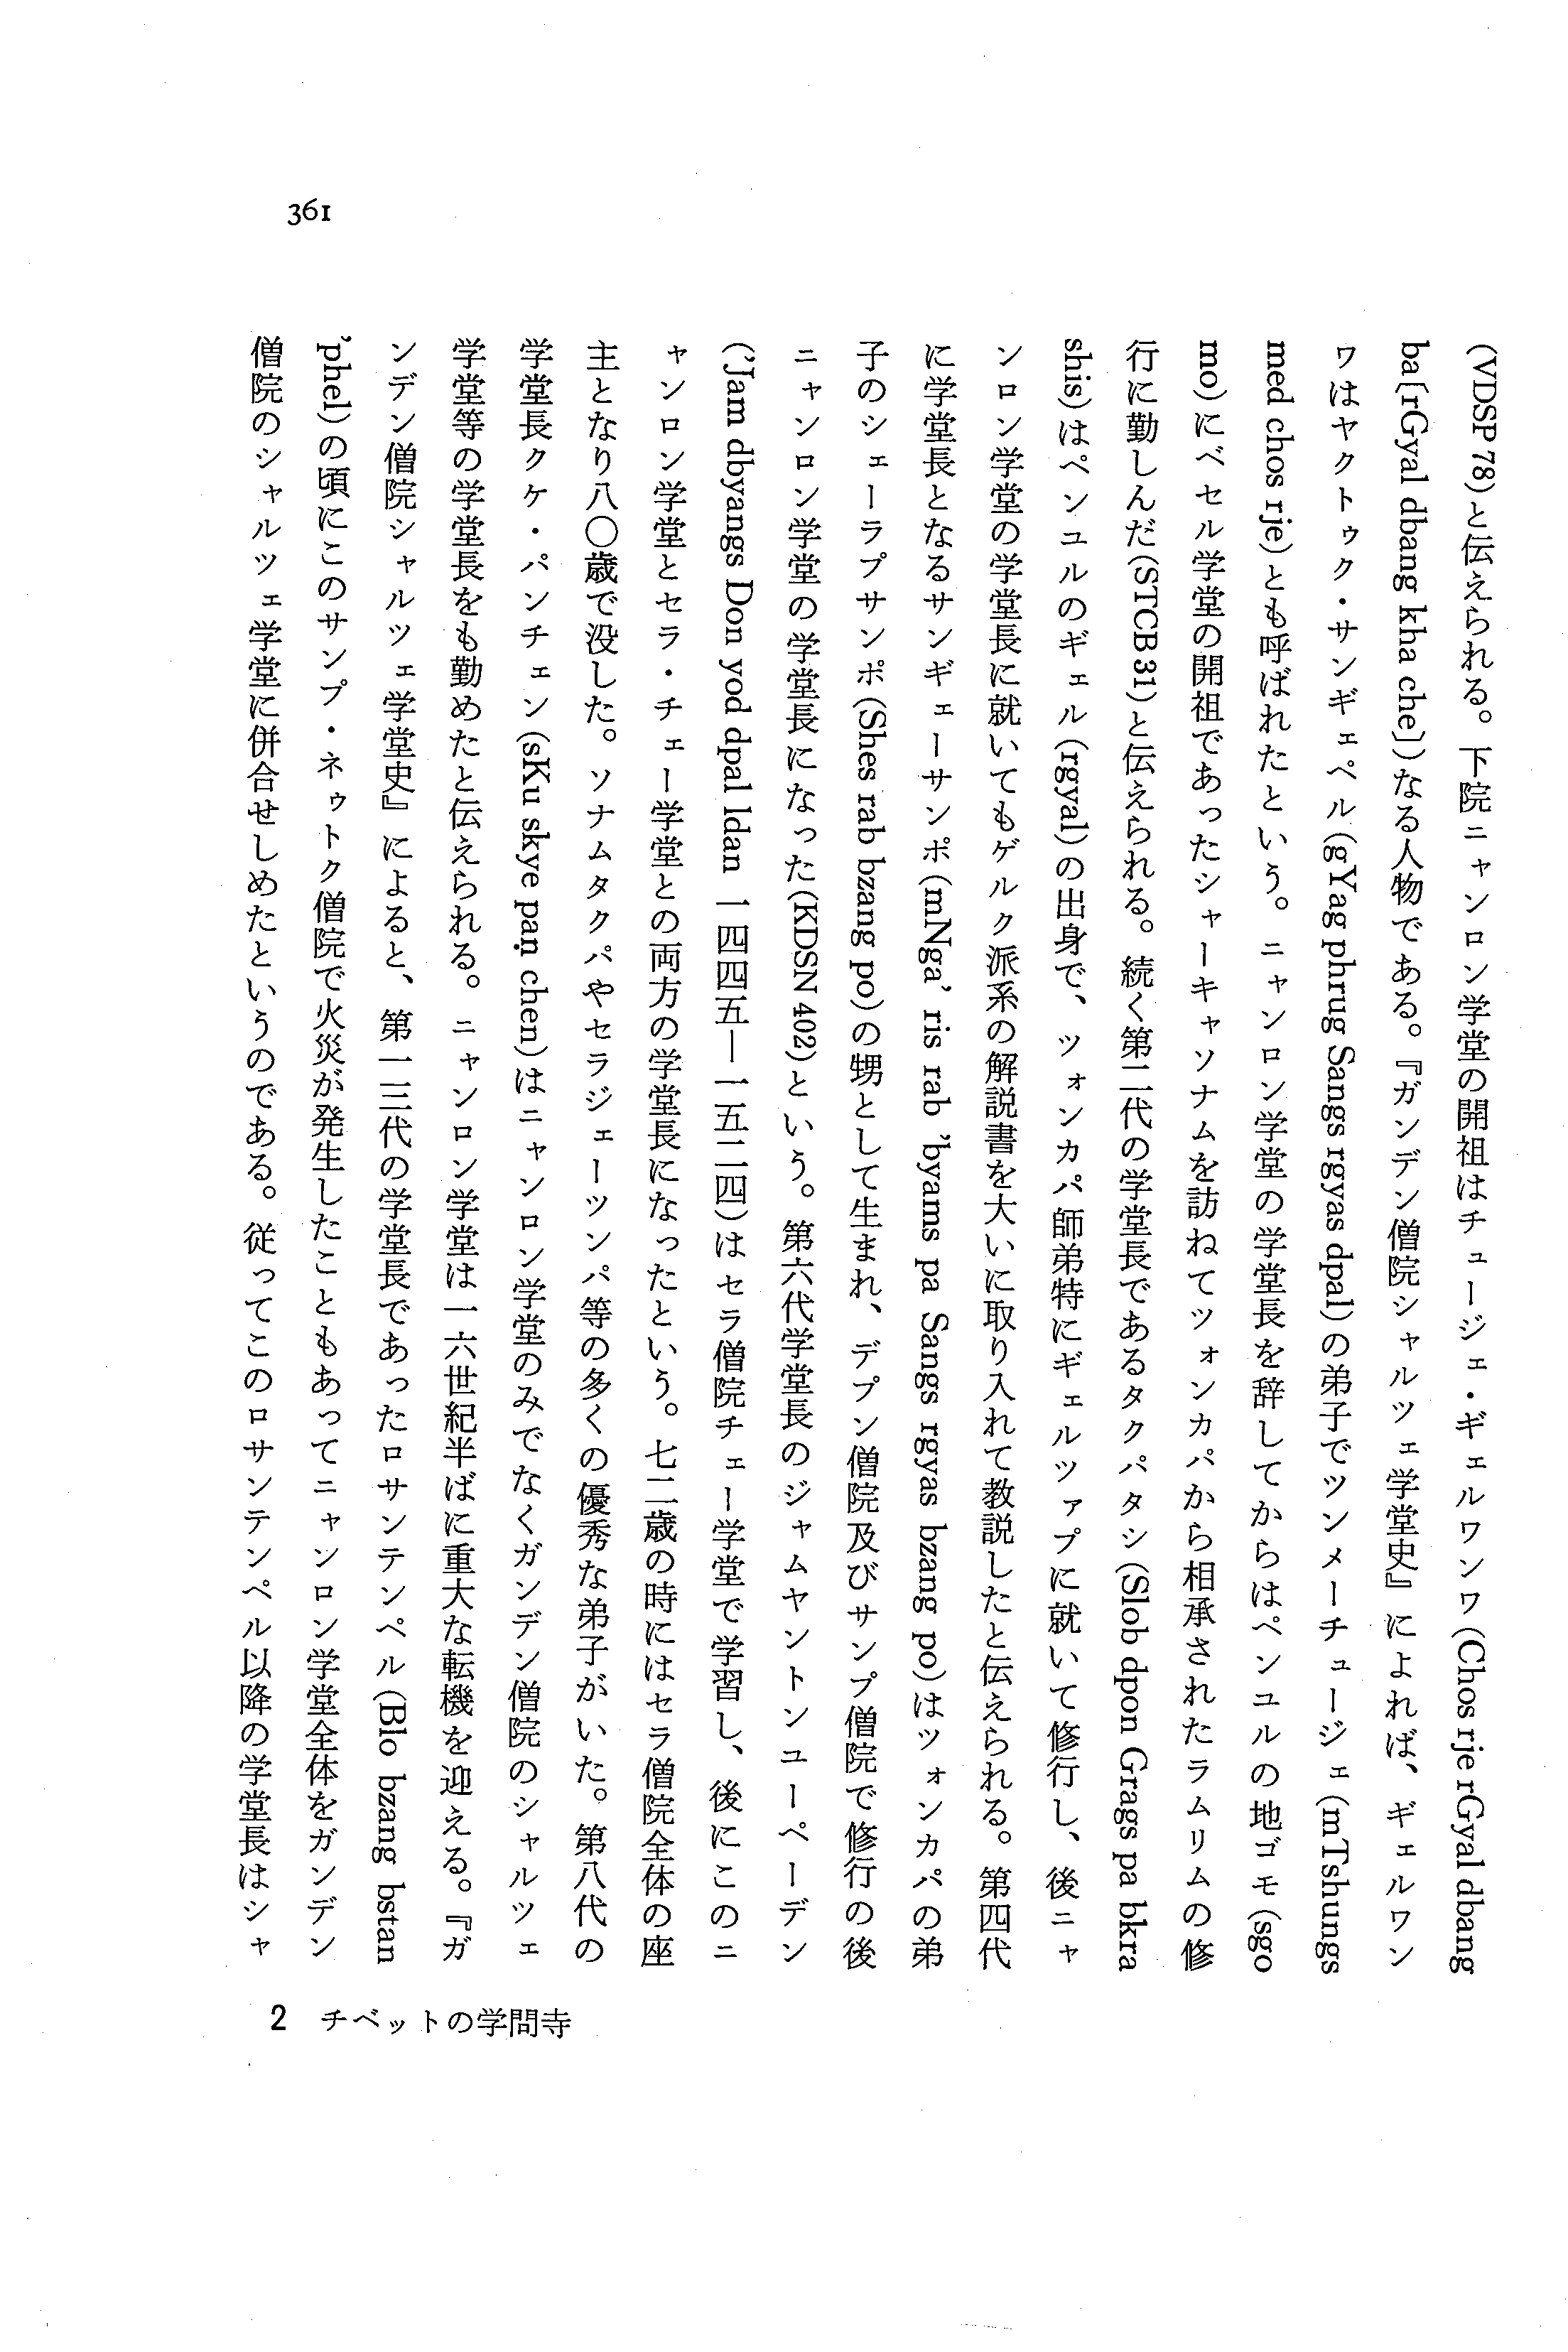 (VDSP 78)と伝えられる。下院ニャンロン学堂の開祖はチュージェ・ギェルワンワ(Chos rje rGyal dbang
ba〔rGyal dbang kha che〕)なる人物である。『ガンデン僧院シャルツェ学堂史』によれば、ギェルワン
ワはヤクトゥク・サンギェペル(gYag phrug Sangs rgyas dpal)の弟子でツンメーチュージェ(mTshungs
med chos rje)とも呼ばれたという。ニャンロン学堂の学堂長を辞してからはペンユルの地ゴモ(sgo
mo)にベセル学堂の開祖であったシャーキャソナムを訪ねてツォンカパから相承されたラムリムの修
行に勤しんだ(STCB 31)と伝えられる。続く第二代の学堂長であるタクパタシ(Slob dpon Grags pa bkra
shis)はペンユルのギェル(rgyal)の出身で、ツォンカパ師弟特にギェルツァプに就いて修行し、後ニャ
ンロン学堂の学堂長に就いてもゲルク派系の解説書を大いに取り入れて教説したと伝えられる。第四代
に学堂長となるサンギェーサンポ(mNga' ris rab 'byams pa Sangs rgyas bzang po)はツォンカパの弟
子のシェーラプサンポ(Shes rab bzang po)の甥として生まれ、デプン僧院及びサンプ僧院で修行の後
ニャンロン学堂の学堂長になった(KDSN 402)という。第六代学堂長のジャムヤントンユーペーデン
('Jam dbyangs Don yod dpal ldan 一四四五―一五二四)はセラ僧院チェー学堂で学習し、後にこのニ
ャンロン学堂とセラ・チェー学堂との両方の学堂長になったという。七二歳の時にはセラ僧院全体の座
主となり八〇歳で没した。ソナムタクパやセラジェーツンパ等の多くの優秀な弟子がいた。第八代の
学堂長クケ・パンチェン(sKu skye paṇ chen)はニャンロン学堂のみでなくガンデン僧院のシャルツェ
学堂等の学堂長をも勤めたと伝えられる。ニャンロン学堂は一六世紀半ばに重大な転機を迎える。『ガ
ンデン僧院シャルツェ学堂史』によると、第一三代の学堂長であったロサンテンペル(Blo bzang bstan
'phel)の頃にこのサンプ・ネゥトク僧院で火災が発生したこともあってニャンロン学堂全体をガンデン
僧院のシャルツェ学堂に併合せしめたというのである。従ってこのロサンテンペル以降の学堂長はシャ
361
2 チベットの学問寺